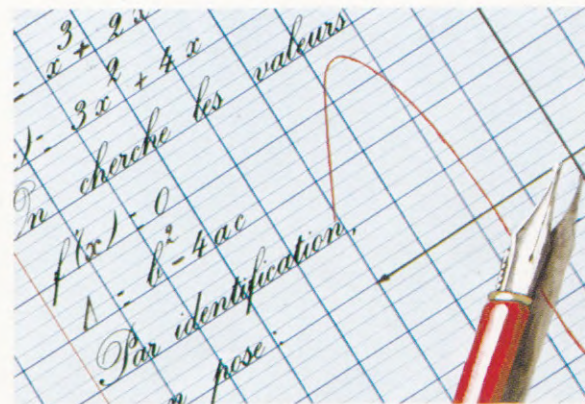 = x³ + 2x
) = 3x² + 4x
On cherche les valeurs
f'(x) = 0
Δ = b² - 4ac
Par identification,
pose :